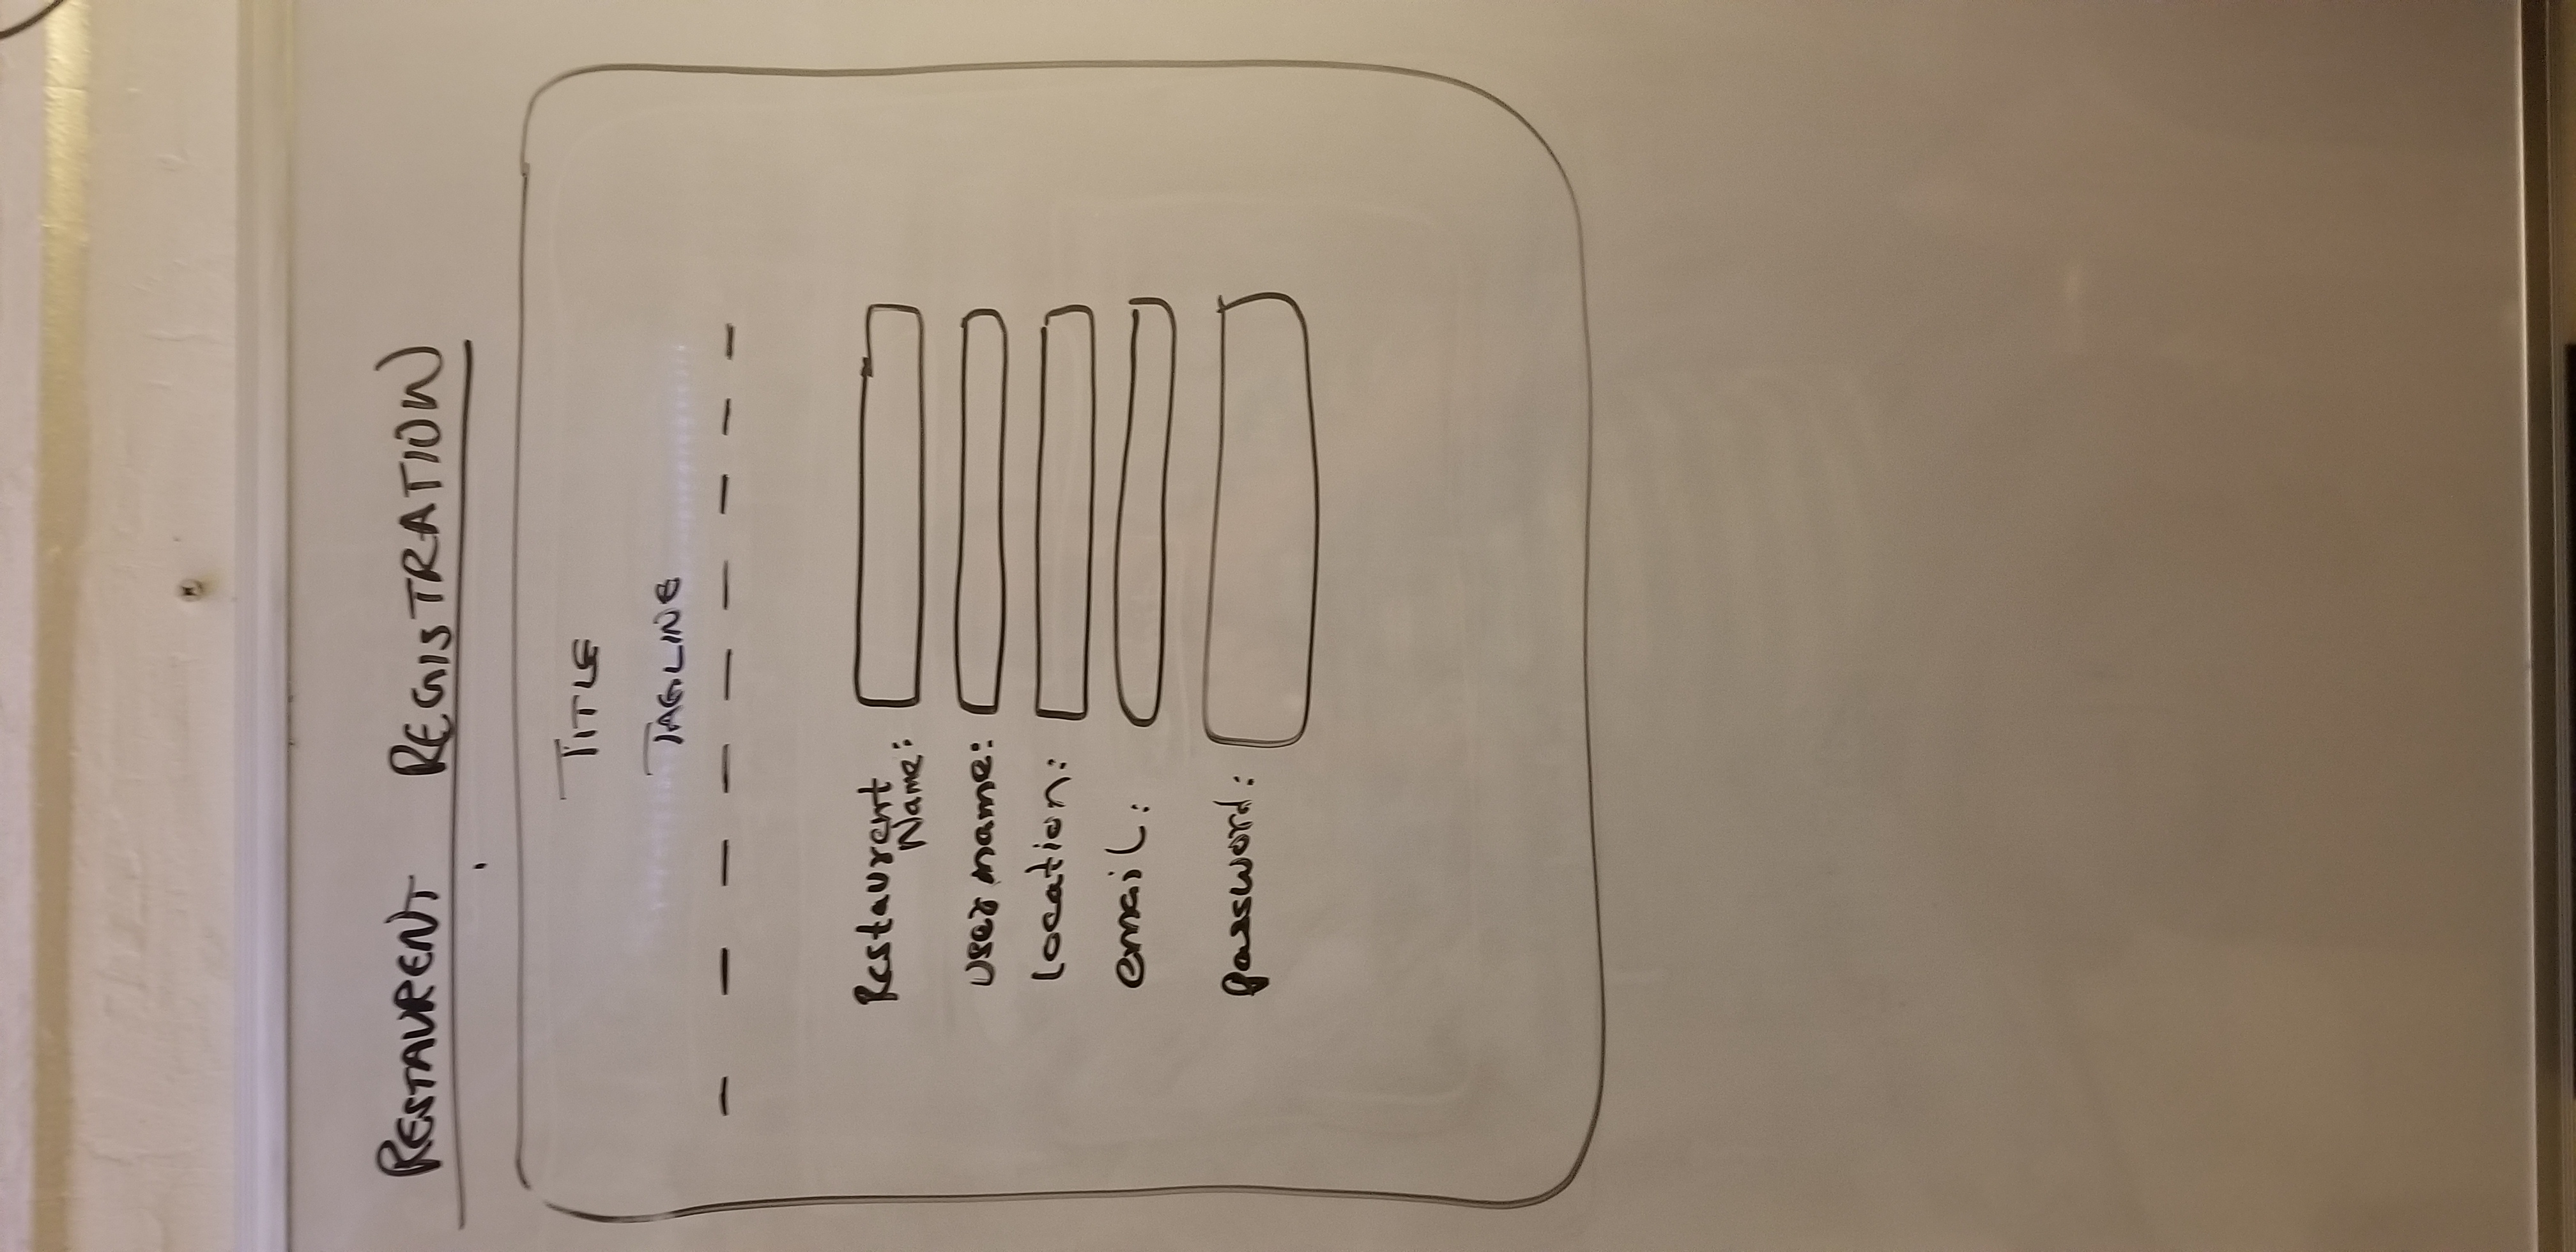 RESTAURENT REGISTRATION
TITLE
TAGLINE
Restaurent
Name:
user name:
location:
email:
password: